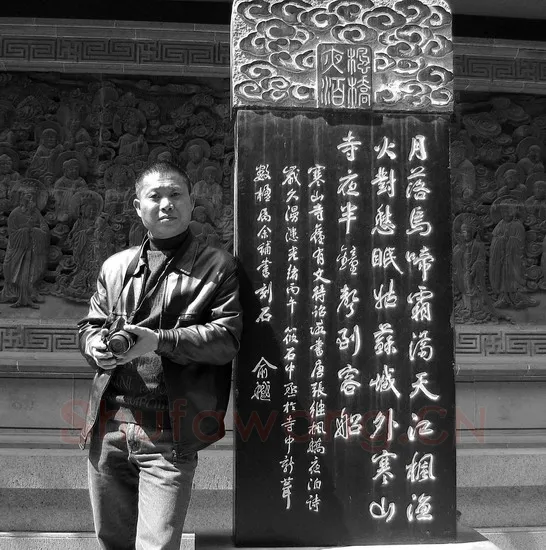 楓橋
夜泊
月落烏啼霜滿天江楓漁
火對愁眠姑蘇城外寒山
寺夜半鐘聲到客船
寒山寺舊有文待詔所書唐張繼楓橋夜泊詩
歲久漫漶光緒丙午筱石中丞於寺中新葺
數楹屬余補書刻石
俞樾
Shufawang.CN